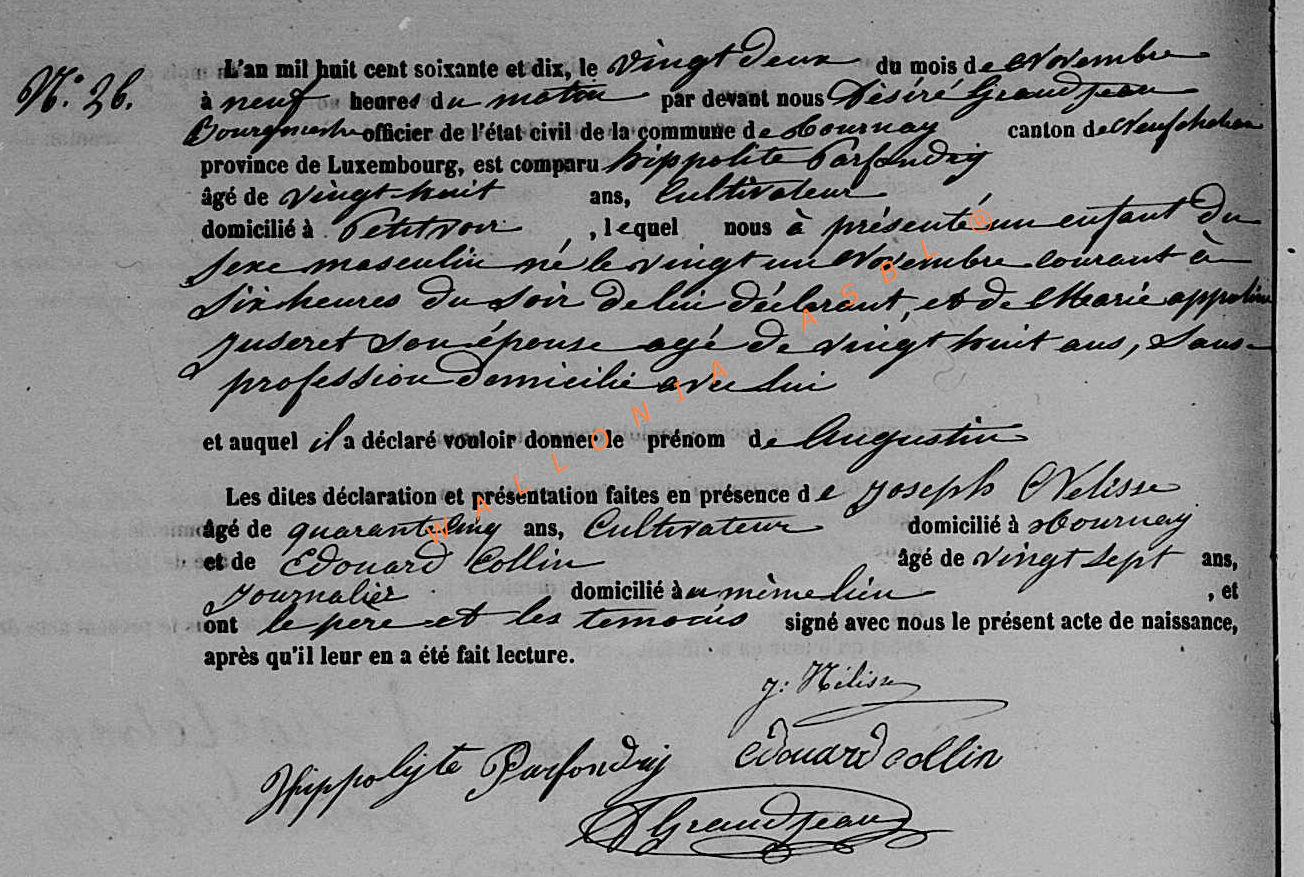 N.° 26.
L'an mil huit cent soixante et dix, le vingt deux du mois de Novembre
à neuf heures du matin par devant nous Désiré Grandjean
Bourgmestre officier de l'état civil de la commune de Tournay canton de Neufchateau
province de Luxembourg, est comparu hippolite Parfondry
âgé de vingt huit ans, Cultivateur
domicilié à Petitvoir , lequel nous à présenté un enfant du
sexe masculin né le vingt un Novembre courant à
six heures du soir de lui déclarant, et de Marie appoline
Juseret son épouse agé de vingt huit ans, sans
profession domicilié avec lui
et auquel il a déclaré vouloir donner le prénom de Augustin
Les dites déclaration et présentation faites en présence de Joseph Nelisse
âgé de quarante cinq ans, Cultivateur domicilié à Tournay
et de Edouard Collin âgé de vingt sept ans,
Journalier domicilié au même lieu , et
ont le pere et les temoins signé avec nous le présent acte de naissance,
après qu'il leur en a été fait lecture.
J: Nélisse
Hippolyte Parfondry Edouard Collin
D Grandjean
WALLONIA ASBL @